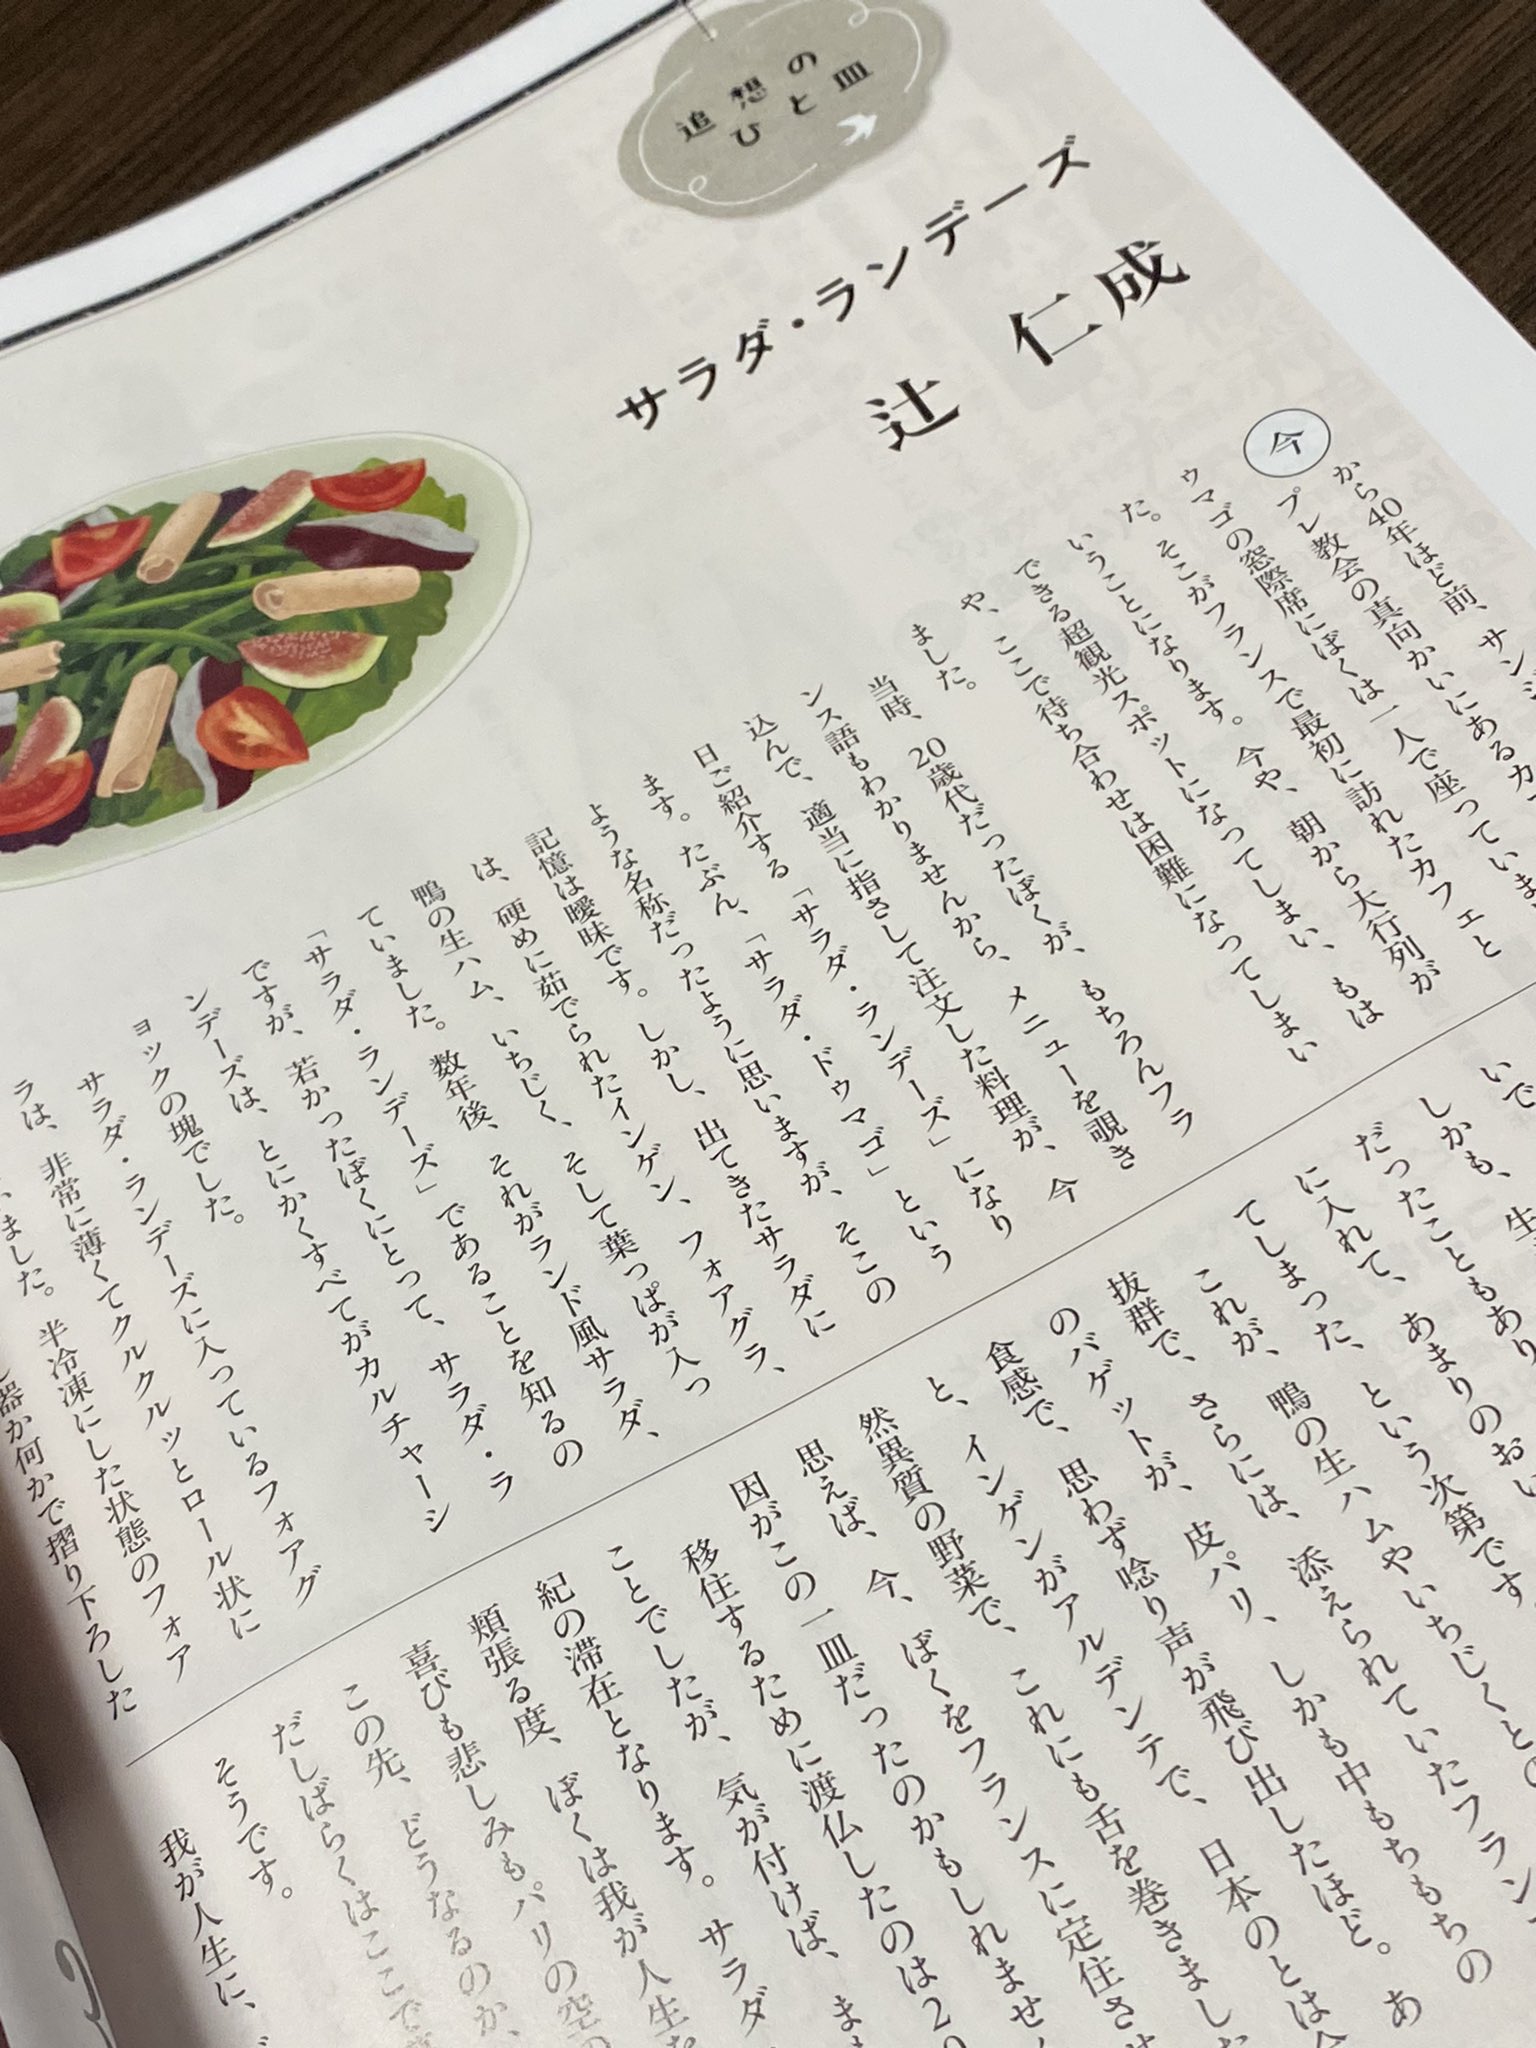 追想の
ひと皿
サラダ・ランデーズ
辻 仁成
今
から40年ほど前、サンジ
プレ教会の真向かいにあるカフ
ゥマゴの窓際席にぼくは一人で座っていま
た。そこがフランスで最初に訪れたカフェと
いうことになります。今や、朝から大行列が
できる超観光スポットになってしまい、もは
や、ここで待ち合わせは困難になってしまい
ました。
当時、20歳代だったぼくが、もちろんフラ
ンス語もわかりませんから、メニューを覗き
込んで、適当に指さして注文した料理が、今
日ご紹介する「サラダ・ランデーズ」になり
ます。たぶん、「サラダ・ドゥマゴ」という
ような名称だったように思いますが、そこの
記憶は曖昧です。しかし、出てきたサラダに
は、硬めに茹でられたインゲン、フォアグラ、
鴨の生ハム、いちじく、そして葉っぱが入っ
ていました。数年後、それがランド風サラダ、
「サラダ・ランデーズ」であることを知るの
ですが、若かったぼくにとって、サラダ・ラ
ンデーズは、とにかくすべてがカルチャーシ
ョックの塊でした。
サラダ・ランデーズに入っているフォアグ
ラは、非常に薄くてクルクルッとロール状に
ました。半冷凍にした状態のフォア
器か何かで摺り下ろした
いで
しかも、生
だったこともあり
に入れて、あまりのおい
てしまった、という次第です
これが、鴨の生ハムやいちじくとの
抜群で、さらには、添えられていたフラン
のバゲットが、皮パリ、しかも中もちもちの
食感で、思わず唸り声が飛び出したほど。あ
と、インゲンがアルデンテで、日本のとは全
然異質の野菜で、これにも舌を巻きました
思えば、今、ぼくをフランスに定住させ
因がこの一皿だったのかもしれませ
移住するために渡仏したのは20
ことでしたが、気が付けば、ま
紀の滞在となります。サラダ
頬張る度、ぼくは我が人生を
喜びも悲しみもパリの空の
この先、どうなるのか、
だしばらくはここで
そうです。
我が人生に、